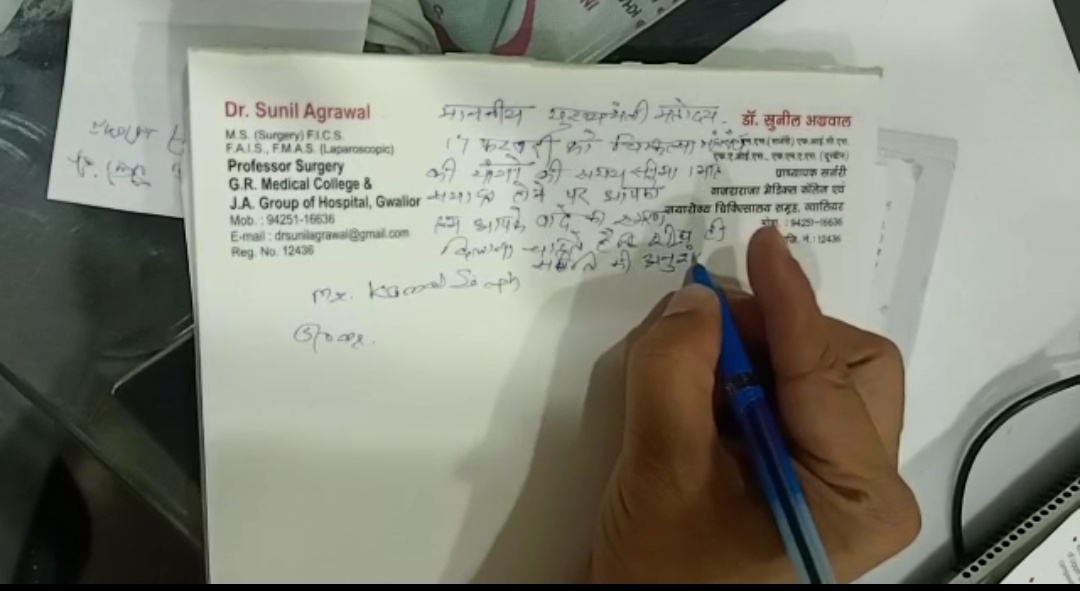 Dr. Sunil Agrawal
M.S. (Surgery) F.I.C.S.
F.A.I.S., F.M.A.S. (Laparoscopic)
Professor Surgery
G.R. Medical College &
J.A. Group of Hospital, Gwalior
Mob. : 94251-16636
E-mail : drsunilagrawal@gmail.com
Reg. No. 12436
डॉ. सुनील अग्रवाल
एम.एस. (सर्जरी) एफ.आई.सी.एस.
एफ.ए.आई.एस., एफ.एम.ए.एस. (दूरबीन)
प्राध्यापक सर्जरी
गजराराजा मेडिकल कॉलेज एवं
जयारोग्य चिकित्सालय समूह, ग्वालियर
मोबा. : 94251-16636
रजि. नं. : 12436
माननीय मुख्यमंत्री महोदय.
17 फरवरी को चिकित्सा
की मांगों की समय सीमा
समाप्त होने पर आपको
हम आपके वादे की स्मरण
दिलाना चाहते है कि शीघ्र ही
Mr. Kamal Singh